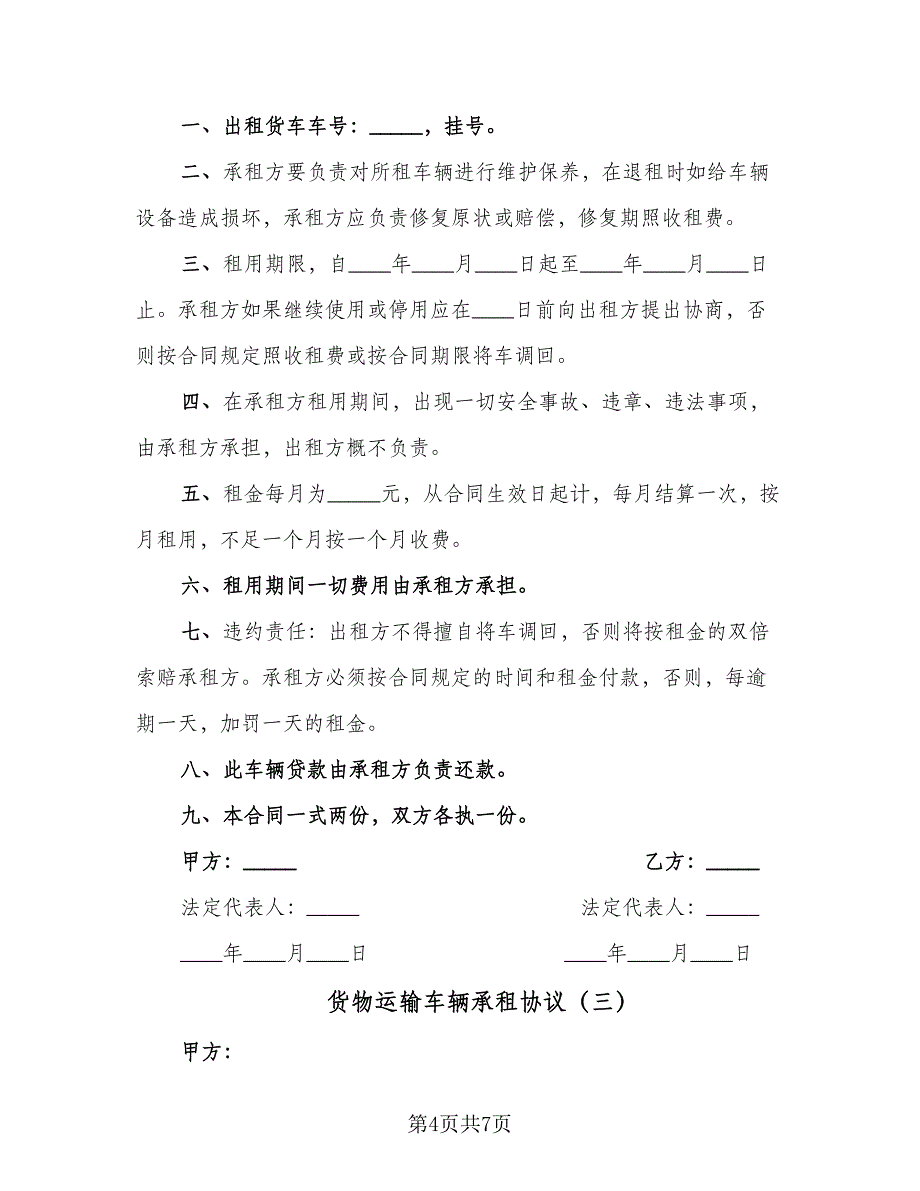 一、出租货车车号：_____，挂号。
二、承租方要负责对所租车辆进行维护保养，在退租时如给车辆
设备造成损坏，承租方应负责修复原状或赔偿，修复期照收租费。
三、租用期限，自____年____月____日起至____年____月____日
止。承租方如果继续使用或停用应在____日前向出租方提出协商，否
则按合同规定照收租费或按合同期限将车调回。
四、在承租方租用期间，出现一切安全事故、违章、违法事项，
由承租方承担，出租方概不负责。
五、租金每月为_____元，从合同生效日起计，每月结算一次，按
月租用，不足一个月按一个月收费。
六、租用期间一切费用由承租方承担。
七、违约责任：出租方不得擅自将车调回，否则将按租金的双倍
索赔承租方。承租方必须按合同规定的时间和租金付款，否则，每逾
期一天，加罚一天的租金。
八、此车辆贷款由承租方负责还款。
九、本合同一式两份，双方各执一份。
甲方：_____ 乙方：_____
法定代表人：_____ 法定代表人：_____
____年____月____日 ____年____月____日
货物运输车辆承租协议（三）
甲方：
第4页共7页